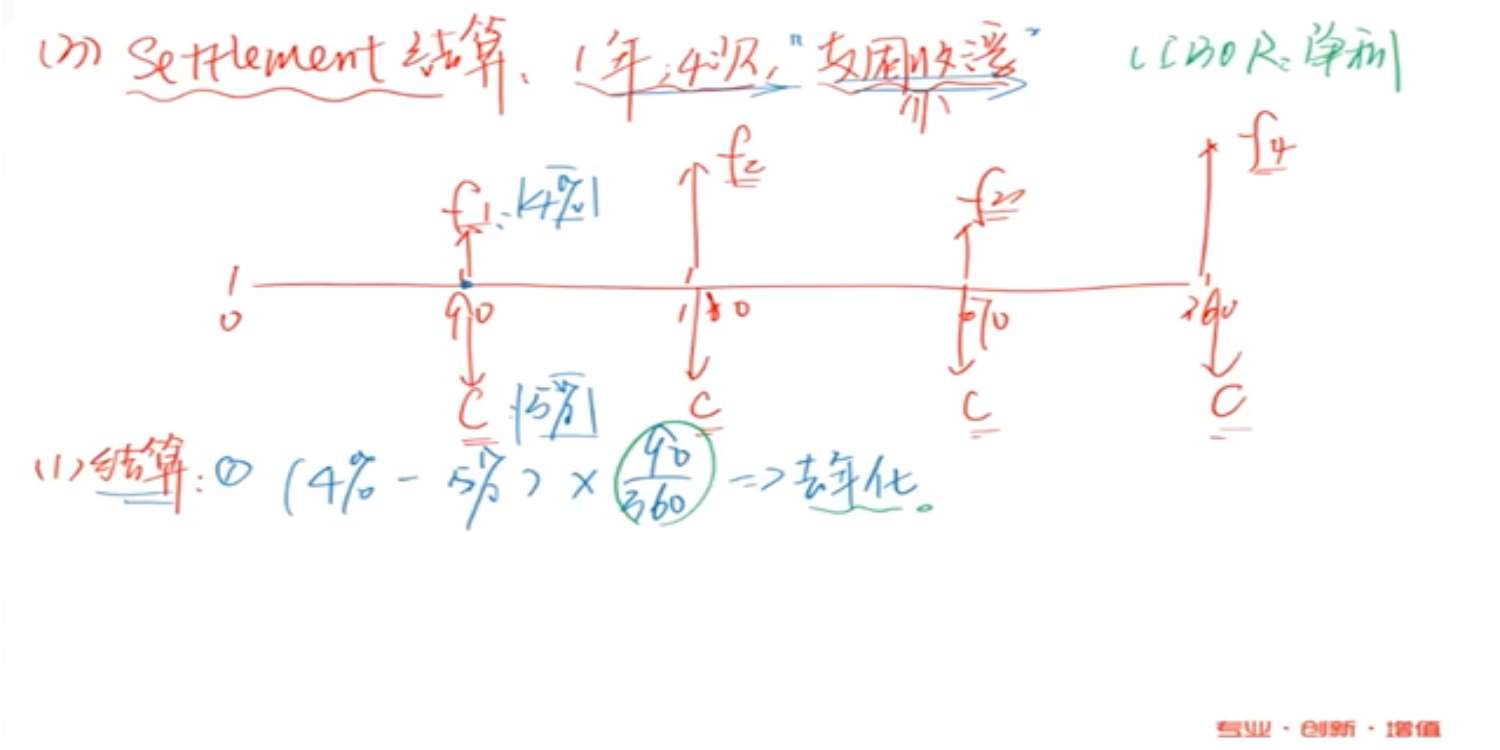 (3) Settlement 结算、1年,4次,"支固收浮" LIBOR:单利
f1:|4%| f2 f3 f4
0 90 180 270 360
C |5%| C C C
(1)结算:① (4% - 5%) × 90/360 => 去年化。
专业·创新·增值